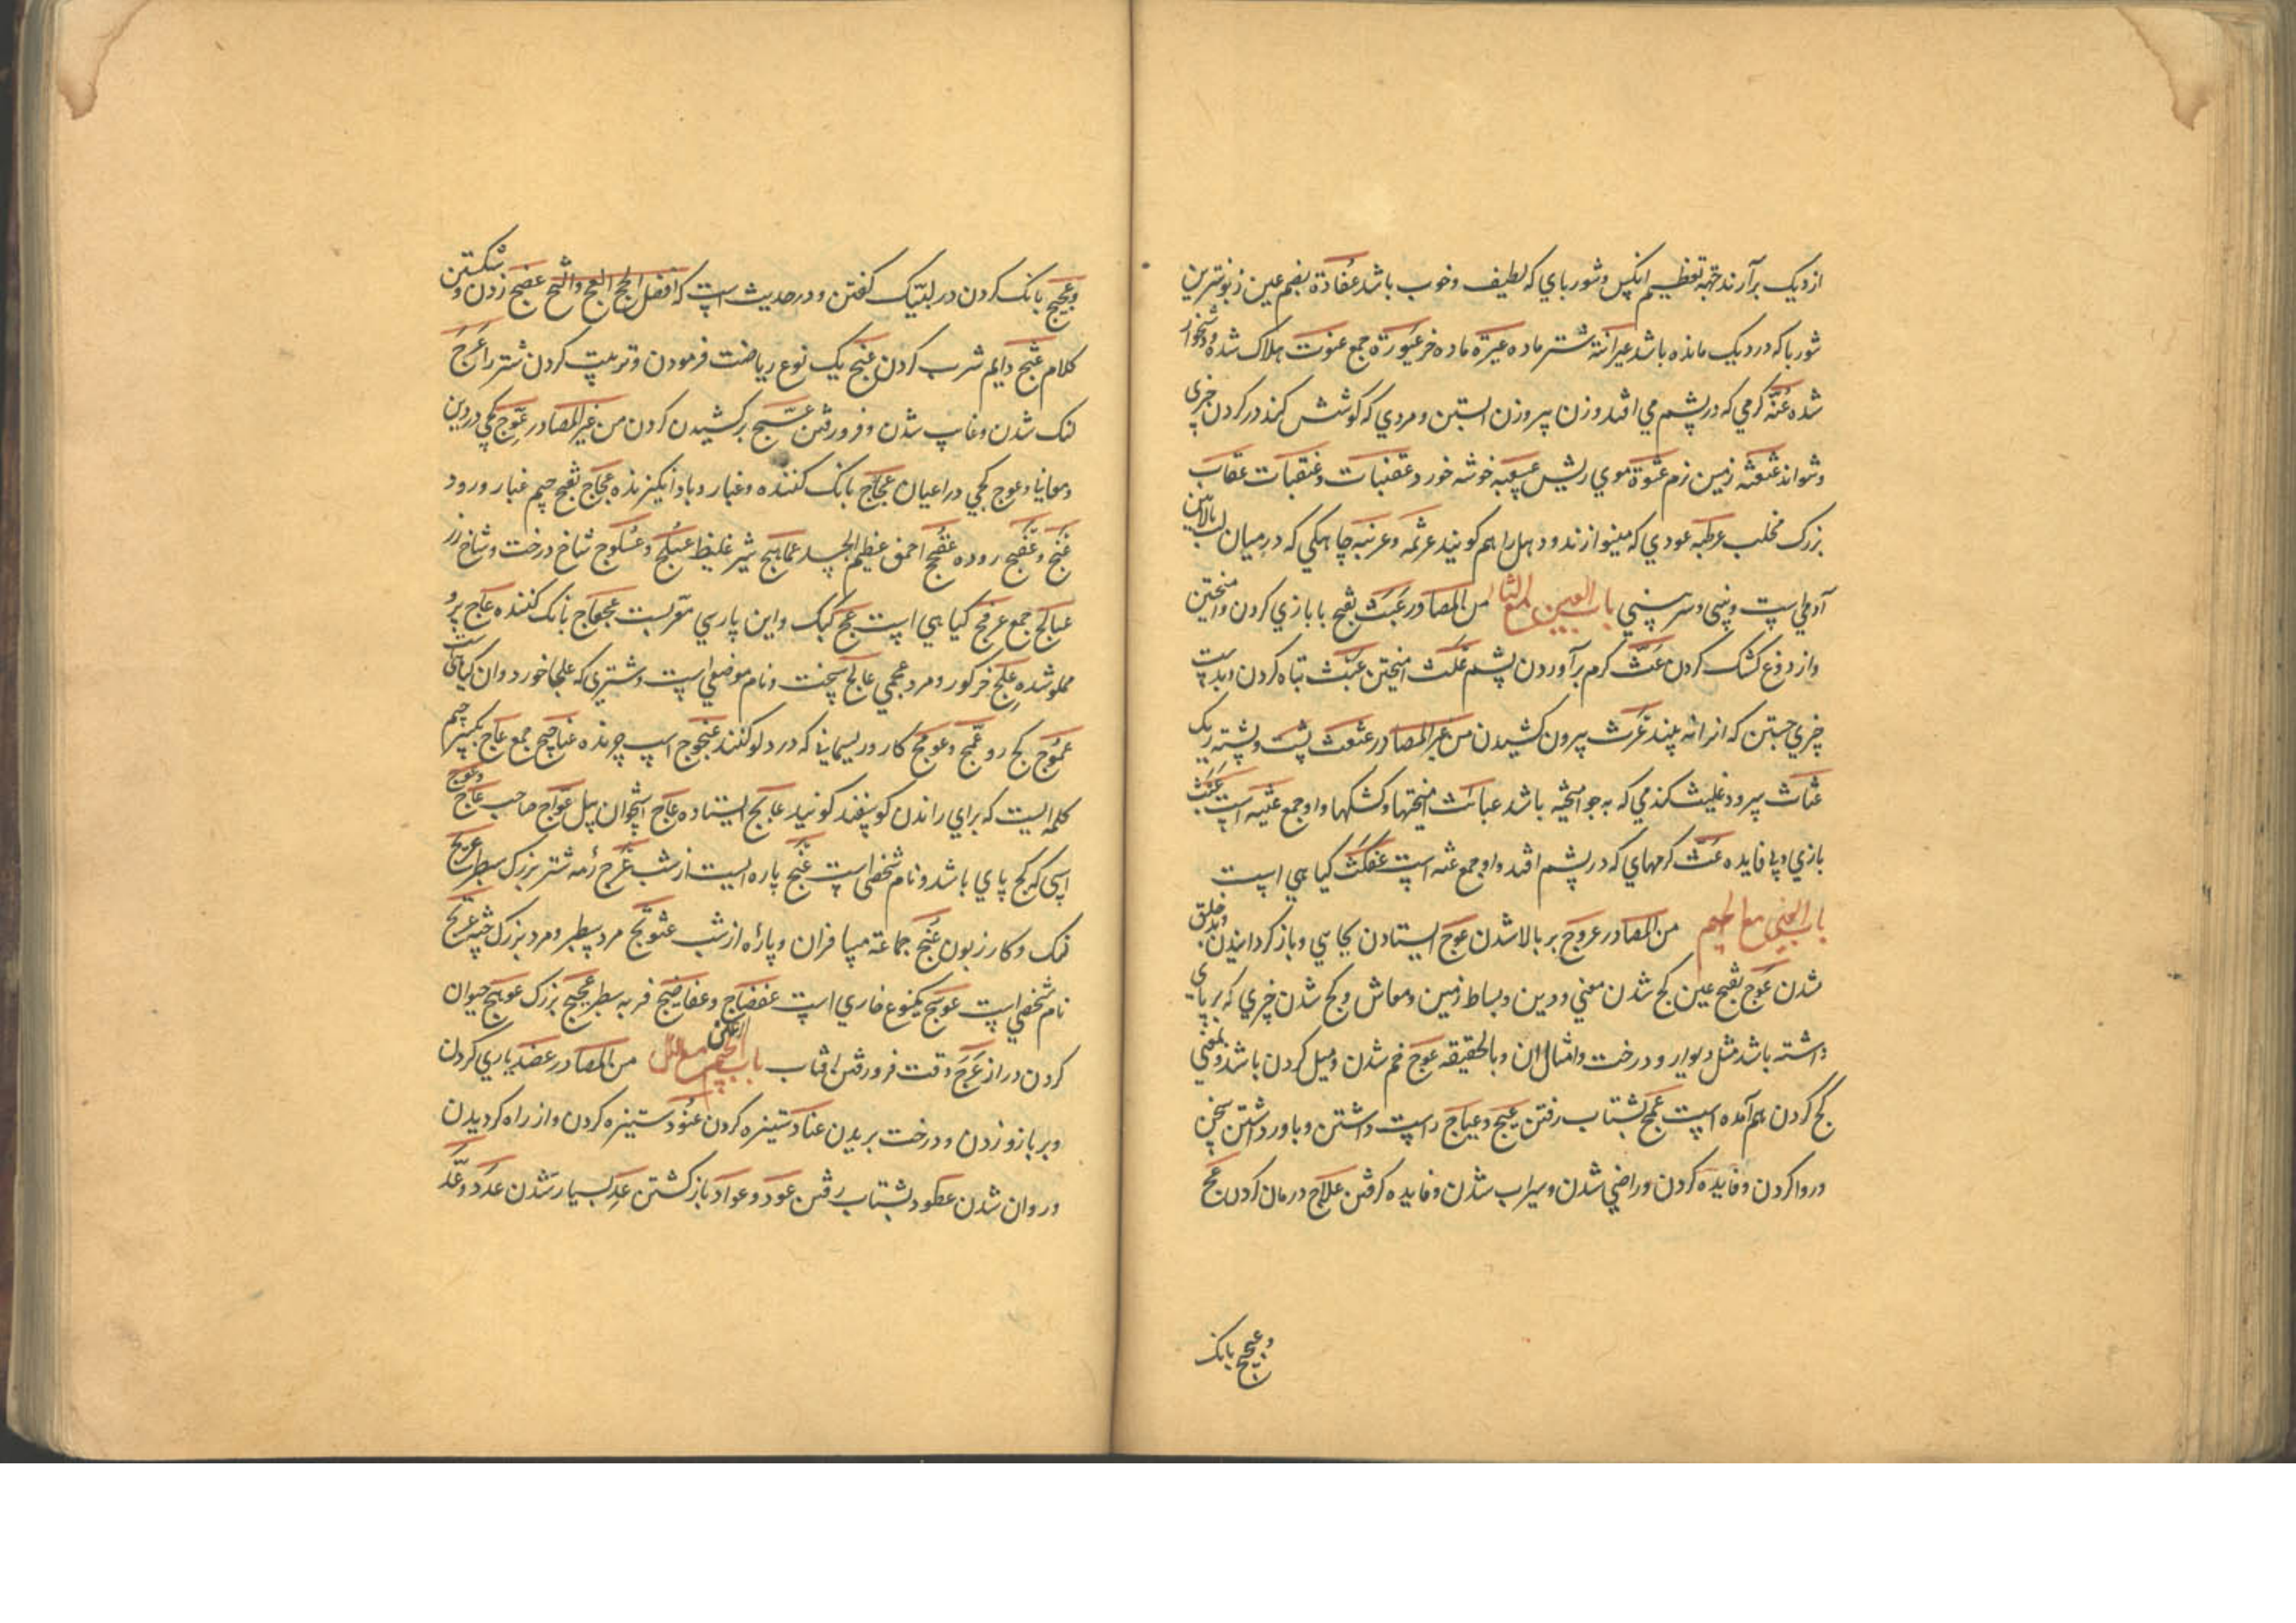 از دیک برآرند جهة تعظیم انکس و شوربای که لطیف و خوب باشد عفادة بضم عین زبونترین
شوربا که در دیک مانده باشد عیرانة شتر ماده عیرة ماده خر عیورة جمع عنوت هلاک شده و دشخوار
شده عثة کرمی که در پشم می افتد و زن پیر و زن ابستن و مردی که کوشش کند در کردن چیزی
و نتواند عثعثه زمین نرم عثوة موی ریش عسقبة خوشه خورد عقنبات و عنقبات عقاب
بزرک مخلب عرطبه عودی که مینوازند و دهل را هم کویند عرثمه و عرتبه چاهکی که در میان لب بالایین
آدمی است و بینی و سر بینی باب العین مع الثا من المصادر عبث بفتح با بازی کردن و امیختن
و از دوغ کشک کردن عثث کرم برآوردن پشم علث امیختن عیث تباه کردن و بدست
چیزی جستن که انرا نه بیند عرث بیرون کشیدن من غیر المصادر عثعث پست و پشته ریک
عثاث سرود علیث کندمی که به جو امیخته باشد عبائث امیختها و کشکها و او جمع عبیثه است عبث
بازی و بی فایده عثث کرمهای که در پشم افتد و او جمع عثه است عنکث کیا هی است
باب العین مع الجیم من المصادر عروج بر بالا شدن عوج ایستادن بجایی و باز کردانیدن و بدخلق
شدن عوج بفتح عین کج شدن معنی و دین و بساط زمین و معاش و کج شدن چیزی که بر پای
داشته باشد مثل دیوار و درخت و امثال ان و بالحقیقه عوج خم شدن و میل کردن باشد و بمعنی
کج کردن هم آمده است عمج بشتاب رفتن عیج و عیاج راست داشتن و باور داشتن سخن
و روا کردن و فایده کردن و راضی شدن و سیراب شدن و فایده کرفتن علاج درمان کردن عج
و عجیج بانک
و عجیج بانک کردن در لبیک کفتن و در حدیث است که افضل الحج العج و الثج عضج زدن و شکستن
کلام عثج دایم شرب کردن عنج یک نوع ریاضت فرمودن و تربیت کردن شتر را عرج
لنک شدن و غایب شدن و فرو رفتن عسج برکشیدن کردن من غیر المصادر عوج کجی در دین
و معانیا و عوج کجی در اعیان عجاج بانک کننده و غبار و باد انکیزنده عجاج بفتح جیم غبار و رود
عفج و عفج روده عفنج احمق عظیم الجسد عماهج شیر غلیظ عسلج و عسلوج شاخ درخت و شاخ رز
عسالج جمع عرفج کیا هی است عج کبک و این پارسی معربست عجعاج بانک کننده عاج پر و
مملو شده علج خر کور و مرد عجمی عالج سخت و نام موضعی است و شتری که علجا خورد و ان کیاهی است
عموج کج رو عمج و عومج کار و ریسمانی که در دلو کنند عنجوج اسپ چرنده عناجیج جمع عاج بکسر جیم
کلمه ایست که برای راندن کوسفند کویند عایج ایستاده عاج استخوان پیل عواج صاحب عاج و عوج
اسپی که کج پای باشد و نام شخصی است عثج پاره ایست از شب عرج رمه شتر بزرک سطبر عریج
لنک و کار زبون عثج جماعة مسافران و پارۀ از شب عثوثج مرد سطبر و مرد بزرک جثه عریج
نام شخصی است عوسج یکنوع خاری است عفضاج و عفاضج فربه سطبر عجیج بزرک عوهج حیوان
کردن دراز عرج وقت فرو رفتن افتاب باب العین مع الدال من المصادر عضد یاری کردن
و بر بازو زدن و درخت بریدن عناد ستیزه کردن عنود ستیزه کردن و از راه کردیدن
و روان شدن عکود بشتاب رفتن عود و عواد باز کشتن عد بسیار شدن عدد و عد